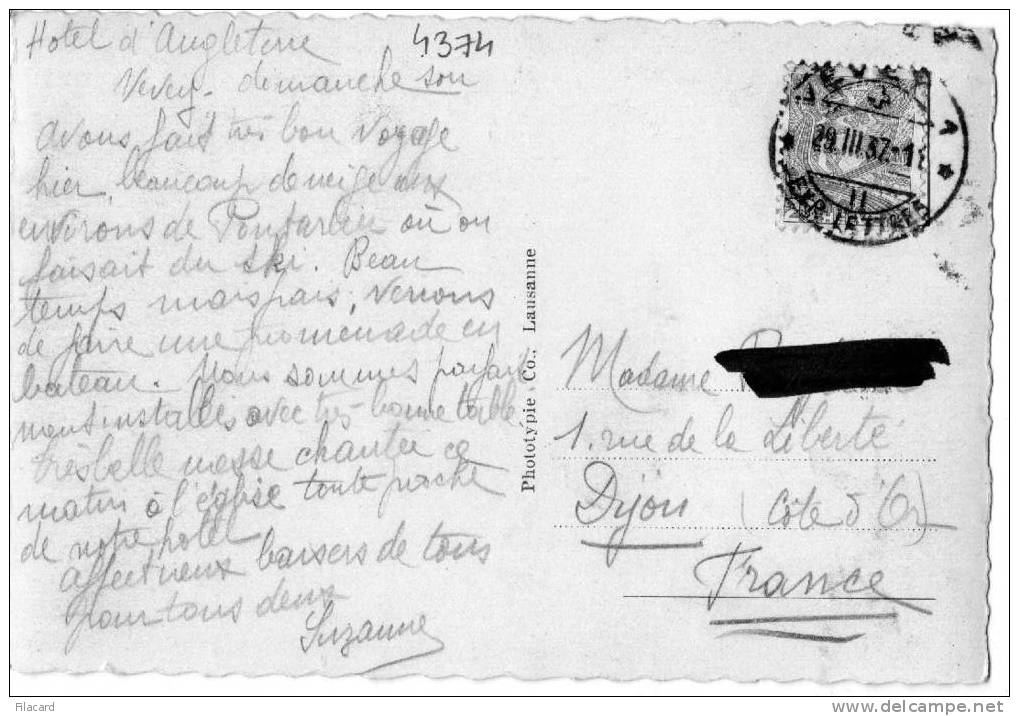 Hotel d'Angleterre
4374
Vevey. dimanche soir
avons fait très bon voyage
hier, beaucoup de neige aux
environs de Pontarlier où on
faisait du ski. Beau
temps mais frais, venons
de faire une promenade en
bateau. Nous sommes parfaite
ment installés avec très bonne table.
très belle messe chantée ce
matin à l'église toute proche
de notre hotel
affectueux baisers de tous
pour tous deux
Suzanne
Phototypie Co., Lausanne
VEVEY 1
29.III.37
EXP. LETTRES
Madame
1. rue de la Liberté
Dijon (Côte d'Or)
France
Filacard